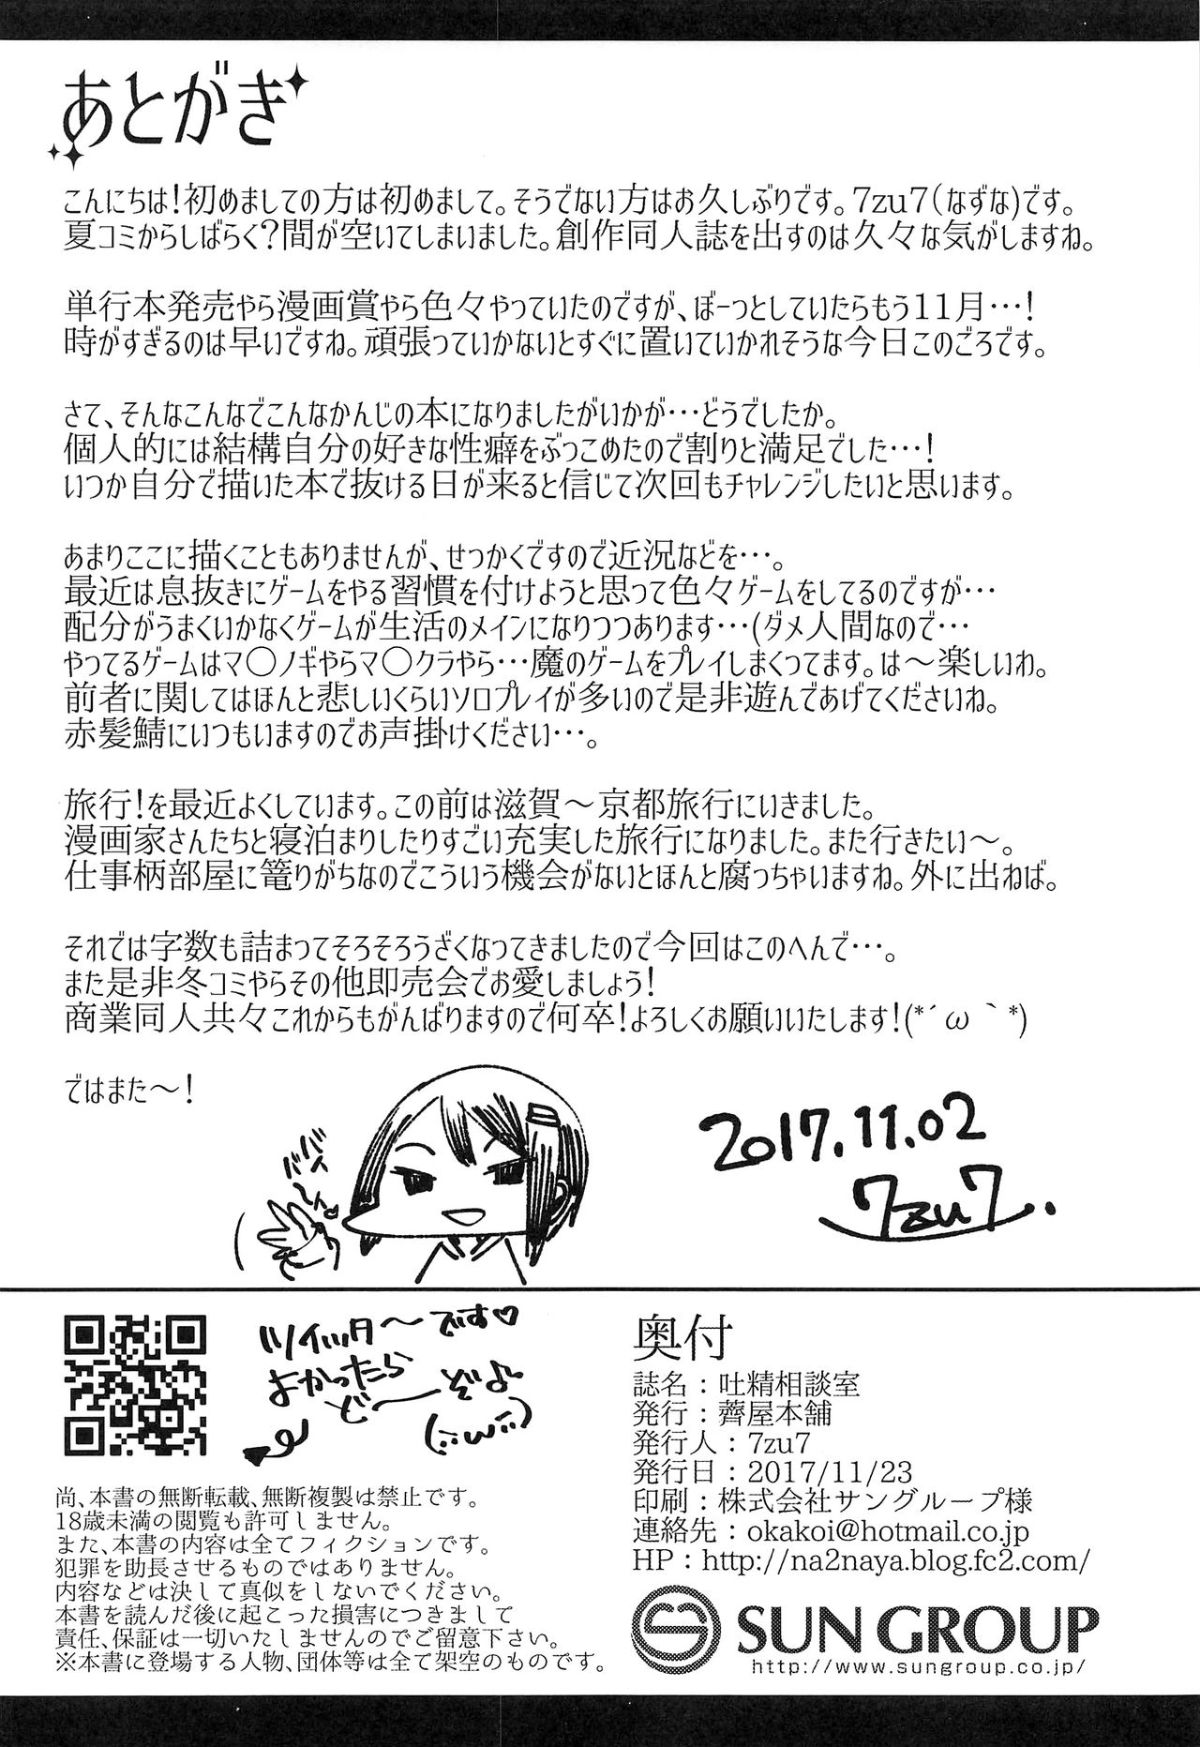 あとがき
こんにちは!初めましての方は初めまして。そうでない方はお久しぶりです。7zu7(なずな)です。
夏コミからしばらく?間が空いてしまいました。創作同人誌を出すのは久々な気がしますね。
単行本発売やら漫画賞やら色々やっていたのですが、ぼーっとしていたらもう11月…!
時がすぎるのは早いですね。頑張っていかないとすぐに置いていかれそうな今日このごろです。
さて、そんなこんなでこんなかんじの本になりましたがいかが…どうでしたか。
個人的には結構自分の好きな性癖をぶっこめたので割りと満足でした…!
いつか自分で描いた本で抜ける日が来ると信じて次回もチャレンジしたいと思います。
あまりここに描くこともありませんが、せっかくですので近況などを…。
最近は息抜きにゲームをやる習慣を付けようと思って色々ゲームをしてるのですが…
配分がうまくいかなくゲームが生活のメインになりつつあります…(ダメ人間なので…
やってるゲームはマ〇ノギやらマ〇クラやら…魔のゲームをプレイしまくってます。は～楽しいわ。
前者に関してはほんと悲しいくらいソロプレイが多いので是非遊んであげてくださいね。
赤髪鯖にいつもいますのでお声掛けください…。
旅行!を最近よくしています。この前は滋賀～京都旅行にいきました。
漫画家さんたちと寝泊まりしたりすごい充実した旅行になりました。また行きたい～。
仕事柄部屋に篭りがちなのでこういう機会がないとほんと腐っちゃいますね。外に出ねば。
それでは字数も詰まってそろそろうざくなってきましたので今回はこのへんで…。
また是非冬コミやらその他即売会でお愛しましょう!
商業同人共々これからもがんばりますので何卒!よろしくお願いいたします!(*´ω｀*)
ではまた～!
バイバ～イ
2017.11.02
7zu7..
ツイッタ～です♡
よかったら
ど～ぞよ
(::ω::)
奥付
誌名：吐精相談室
発行：薺屋本舗
発行人：7zu7
発行日：2017/11/23
印刷：株式会社サングループ様
連絡先：okakoi@hotmail.co.jp
HP：http://na2naya.blog.fc2.com/
SUN GROUP
http://www.sungroup.co.jp/
尚、本書の無断転載、無断複製は禁止です。
18歳未満の閲覧も許可しません。
また、本書の内容は全てフィクションです。
犯罪を助長させるものではありません。
内容などは決して真似をしないでください。
本書を読んだ後に起こった損害につきまして
責任、保証は一切いたしませんのでご留意下さい。
※本書に登場する人物、団体等は全て架空のものです。